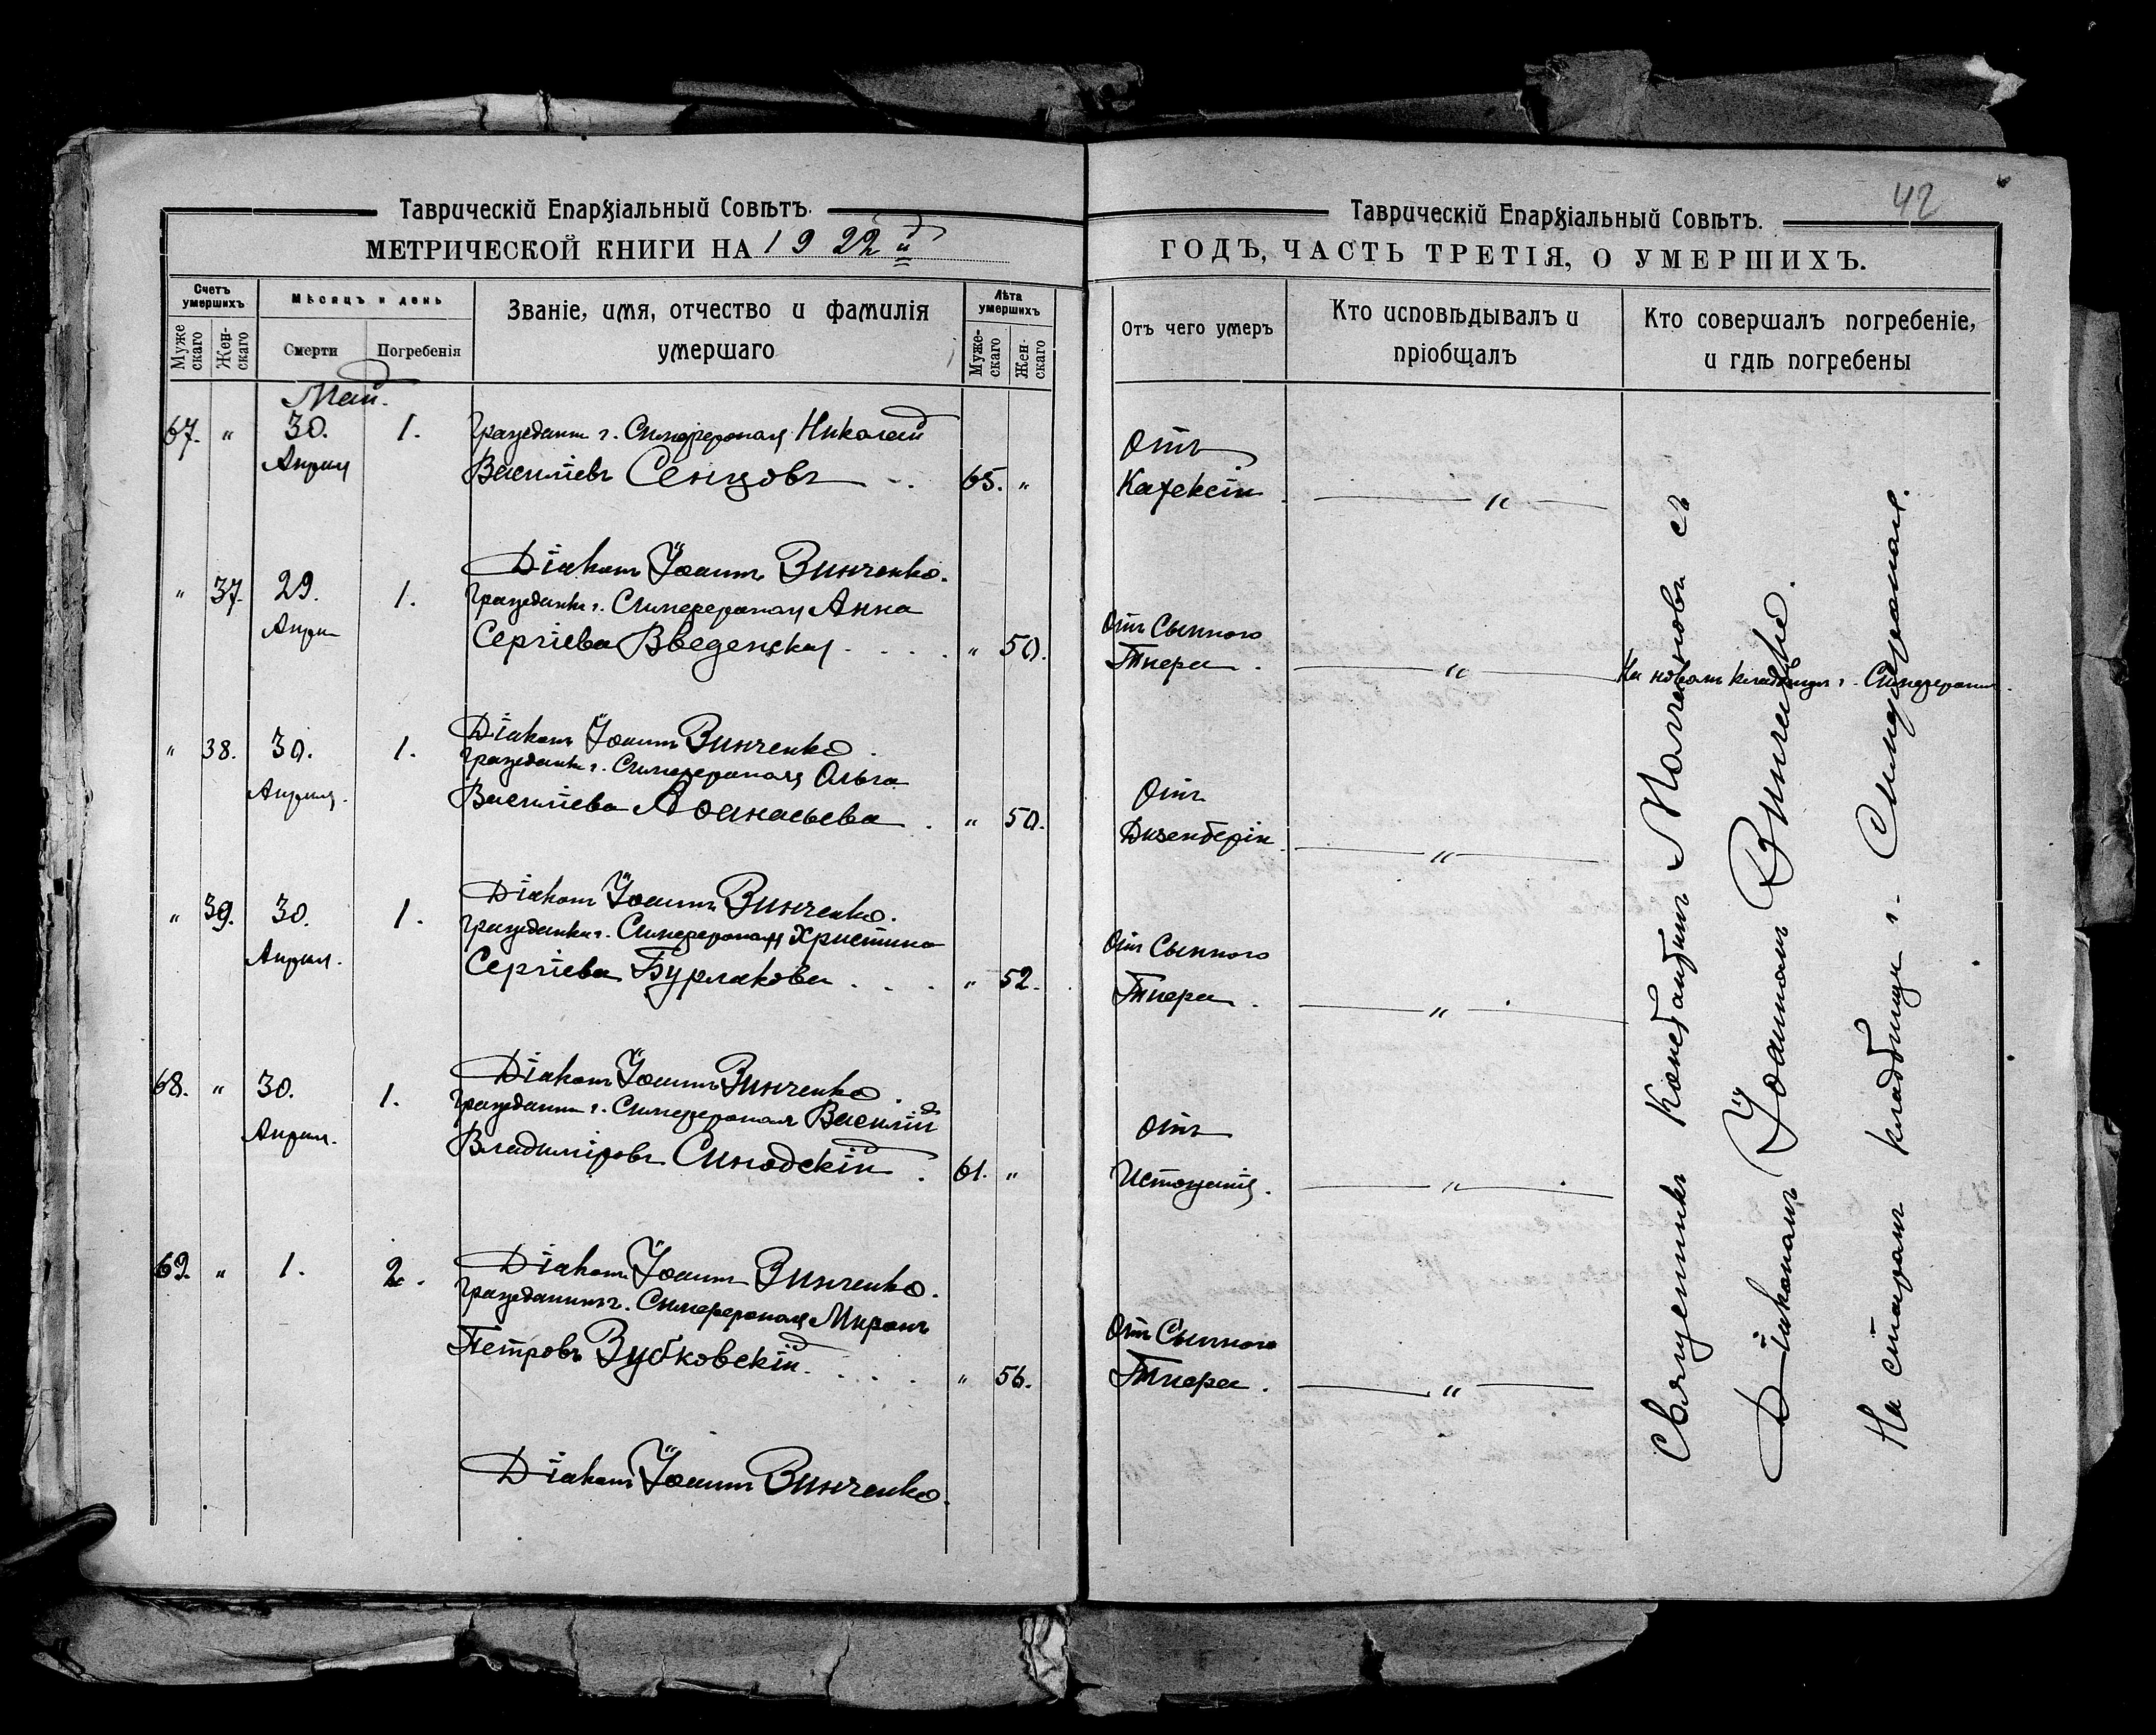 Таврическій Епархіальный Совѣтъ.
МЕТРИЧЕСКОЙ КНИГИ НА 1922й
Счетъ умершихъ
Мужескаго
Женскаго
Мѣсяцъ и день
Смерти
Погребенія
Званіе, имя, отчество и фамилія
умершаго
Лѣта умершихъ
Мужескаго
Женскаго
Май.
67. " 30. 1. Гражданин г. Симферополя Николай
Апреля Васильевъ Сенцовъ 65. "
Діаконъ Іоаннъ Винченко.
" 37. 29. 1. Гражданка г. Симферополя Анна
Апреля Сергіева Введенская " 50.
Діаконъ Іоаннъ Винченко.
" 38. 30. 1. Гражданка г. Симферополя Ольга
Апреля. Васильева Аѳанасьева " 50.
Діаконъ Іоаннъ Винченко.
" 39. 30. 1. Гражданка г. Симферополя Христина
Апреля. Сергіева Бурлакова " 52.
Діаконъ Іоаннъ Винченко.
68. " 30. 1. Гражданин г. Симферополя Василій
Апреля. Владиміровъ Синодскій 61. "
Діаконъ Іоаннъ Винченко.
69. " 1. 2. Гражданинъ г. Симферополя Миронъ
Петровъ Зубковскій. " 56.
Діаконъ Іоаннъ Винченко.
42
Таврическій Епархіальный Совѣтъ.
ГОДЪ, ЧАСТЬ ТРЕТІЯ, О УМЕРШИХЪ.
Отъ чего умеръ
Кто исповѣдывалъ и
пріобщалъ
Кто совершалъ погребеніе,
и гдѣ погребены
Отъ
Кахексіи "
Отъ Сыпного
Тифа. " На новом кладбище г. Симферополя.
Отъ
Дизентеріи. "
Отъ Сыпного
Тифа. "
Отъ
Истощенія. "
Отъ Сыпного
Тифа. "
Священникъ Константинъ съ
Діакономъ Іоанномъ Винченко.
На старомъ кладбище г. Симферополя.